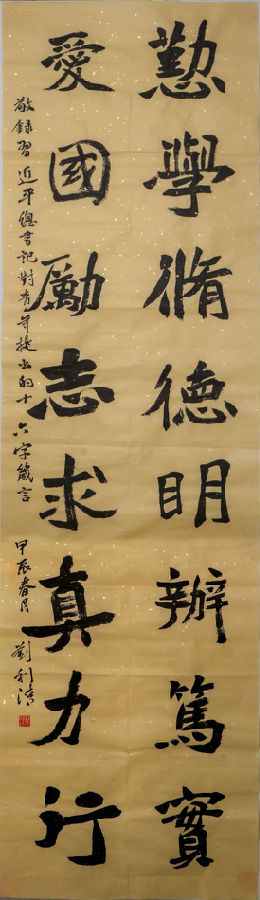 懃學脩德明辨篤實
愛國勵志求真力行
敬錄習近平總書記對青年提出的十六字箴言
甲辰春月 劉利清